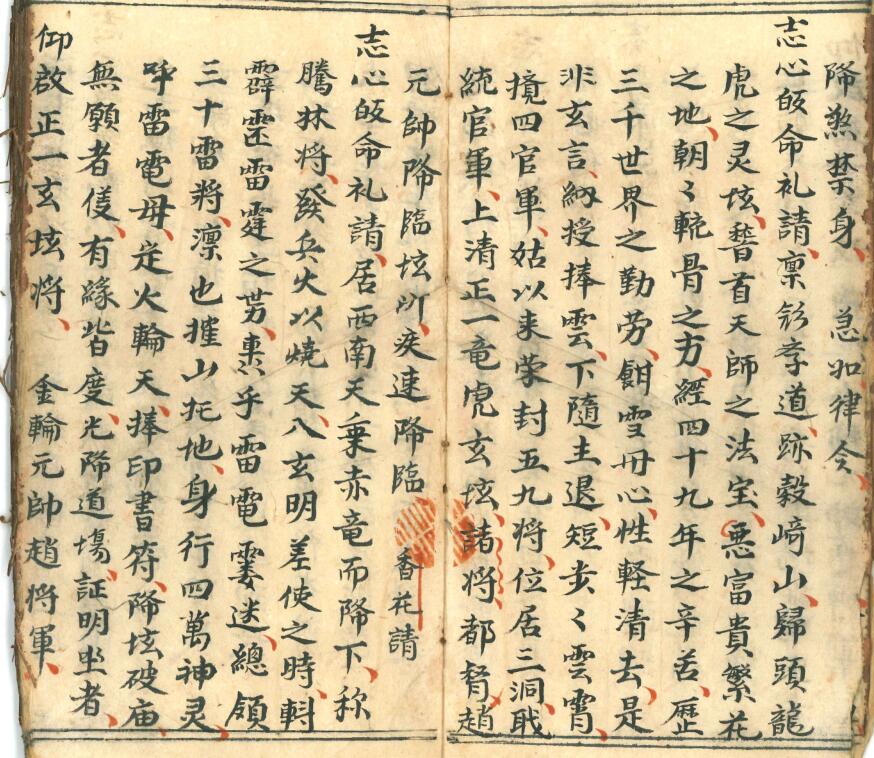 降煞禁身、 急如律令
志心皈命礼請、稟、孝道、跡、穀﨑山、歸頭龍
虎之灵坛、稽首天師之法宝、悪富貴繁花
之地、朝〻軏骨之方、經四十九年之辛苦、歴
三千世界之勤劳、餠雪丹心、性軽清去、是
非玄言、綱授捧雲、下隨主退、短歩〻雲霄、
境四官軍、姑以来荣封五九将、位居三洞、戢
統官軍、上清正一竜虎玄坛、諸将、都督趙
元帥降臨坛所、疾速降臨 香花請
志心皈命礼請、居西南天、乗赤竜而降下、称
騰林将、發兵火以燒天、八玄明差使之時、斟
霹雳雷霆之势、乎雷電霎迷、總領
三十雷将、凛也摧山托地、身行四萬神灵、
呼雷電母、定火輪天、捧印書符、降坛破庙、
無願者侵、有縁皆度、光降道塲、証明坐者、
仰啟正一玄坛将、 金輪元帥趙将軍、